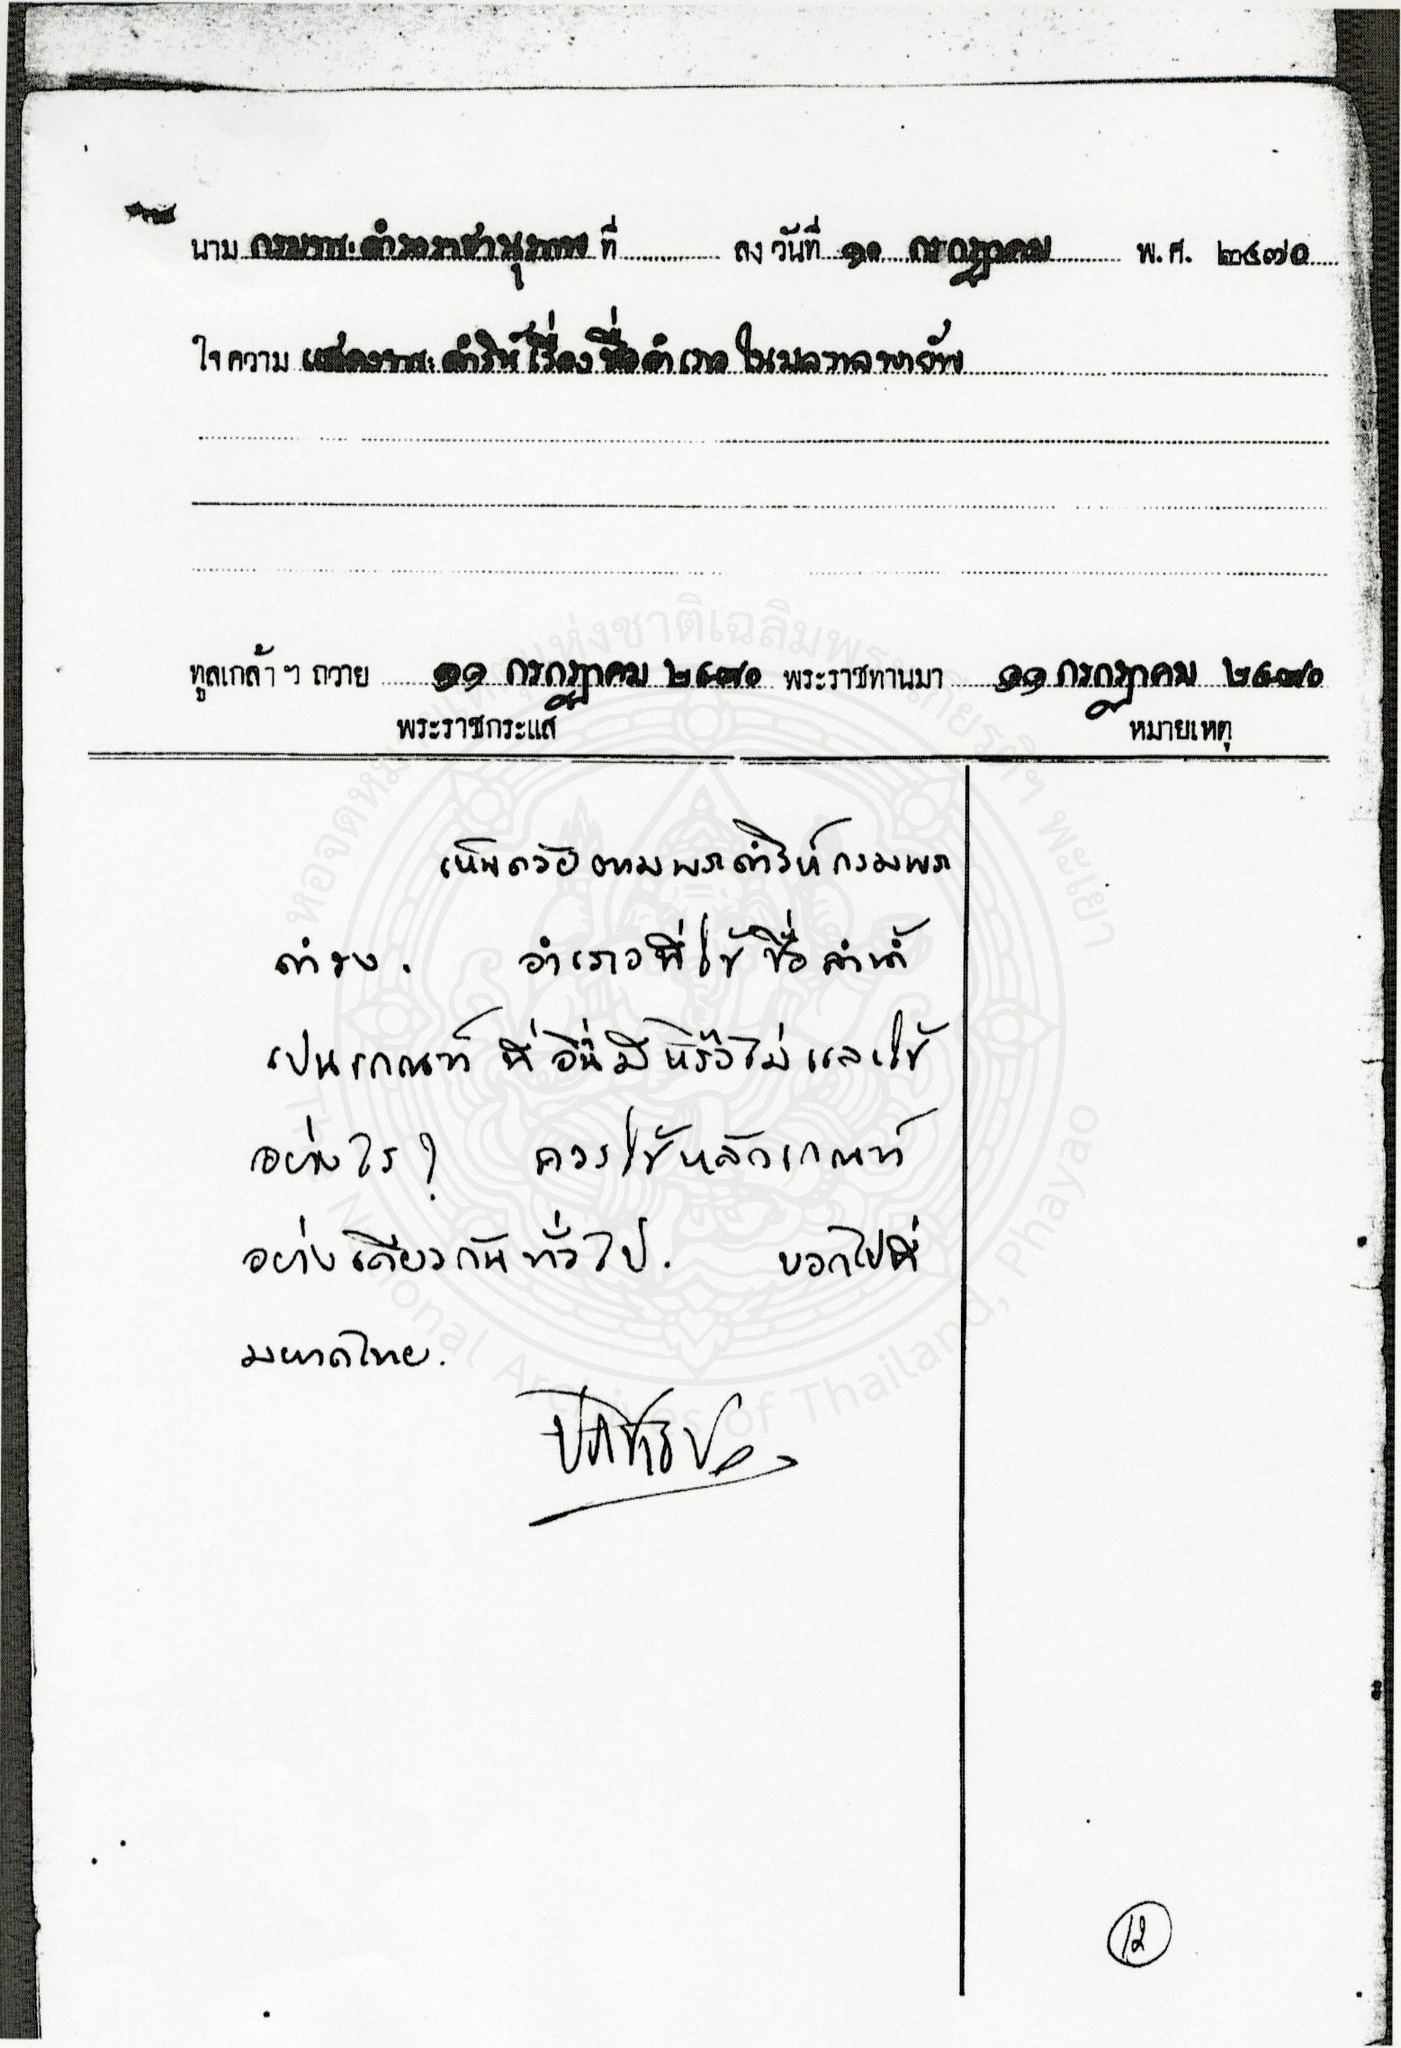 นาม กรมพระดำรงราชานุภาพ ที่ ลงวันที่ ๑๐ กรกฎาคม พ.ศ. ๒๔๗๐
ใจความ แสดงพระดำริห์เรื่องชื่ออำเภอในมลฑลพายัพ
ทูลเกล้า ฯ ถวาย ๑๑ กรกฎาคม ๒๔๗๐ พระราชทานมา ๑๑ กรกฎาคม ๒๔๗๐
พระราชกระแส หมายเหตุ
เห็นด้วยตามพระดำริห์กรมพระ
ดำรง. อำเภอที่ใช้ชื่อลำน้ำ
เปนเกณฑ์ ที่อื่นมีหรือไม่และใช้
อย่างไร? ควรใช้หลักเกณฑ์
อย่างเดียวกันทั่วไป. บอกไปที่
มหาดไทย.
ประชาธิปก
หอจดหมายเหตุแห่งชาติเฉลิมพระเกียรติฯ พะเยา
The National Archives of Thailand, Phayao
12